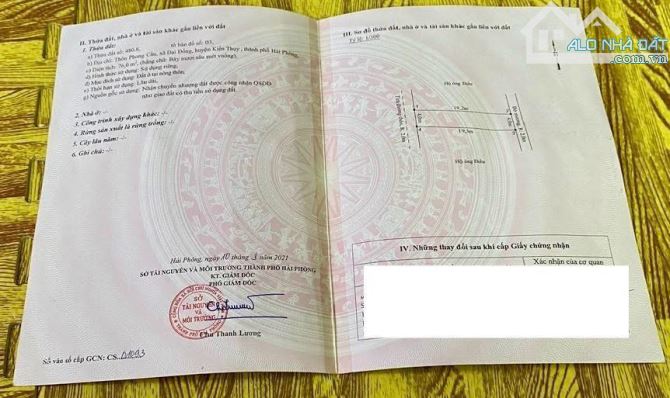 ALO NHÀ ĐẤT
Alonhadat.com.vn
II. Thửa đất, nhà ở và tài sản khác gắn liền với đất
1. Thửa đất:
a) Thửa đất số: b) tờ bản đồ số: 03,
b) Địa chỉ: Thôn Phong Cầu, xã Đại Đồng, huyện Kiến Thụy, thành phố Hải Phòng,
c) Diện tích: 76,8 m², (bằng chữ: Bảy mươi sáu mét vuông),
d) Hình thức sử dụng: Sử dụng riêng,
đ) Mục đích sử dụng: Đất ở tại nông thôn,
e) Thời hạn sử dụng: Lâu dài,
g) Nguồn gốc sử dụng: Nhận chuyển nhượng đất được công nhận QSDĐ
như giao đất có thu tiền sử dụng đất.
2. Nhà ở: -/-
3. Công trình xây dựng khác: -/-
4. Rừng sản xuất là rừng trồng: -/-
5. Cây lâu năm: -/-
6. Ghi chú: -/-
Hải Phòng, ngày 10 3 2021
SỞ TÀI NGUYÊN VÀ MÔI TRƯỜNG THÀNH PHỐ HẢI PHÒNG
KT. GIÁM ĐỐC
PHÓ GIÁM ĐỐC
SỞ
TÀI NGUYÊN
VÀ
MÔI TRƯỜNG
Chu Thanh Lương
Số vào sổ cấp GCN: CS
III. Sơ đồ thửa đất, nhà ở và tài sản khác gắn liền với đất
Tỷ lệ: 1/500
Hộ ông Điều
19,2m
19,3m
Hộ ông Điều
IV. Những thay đổi sau khi cấp Giấy chứng nhận
Xác nhận của cơ quan